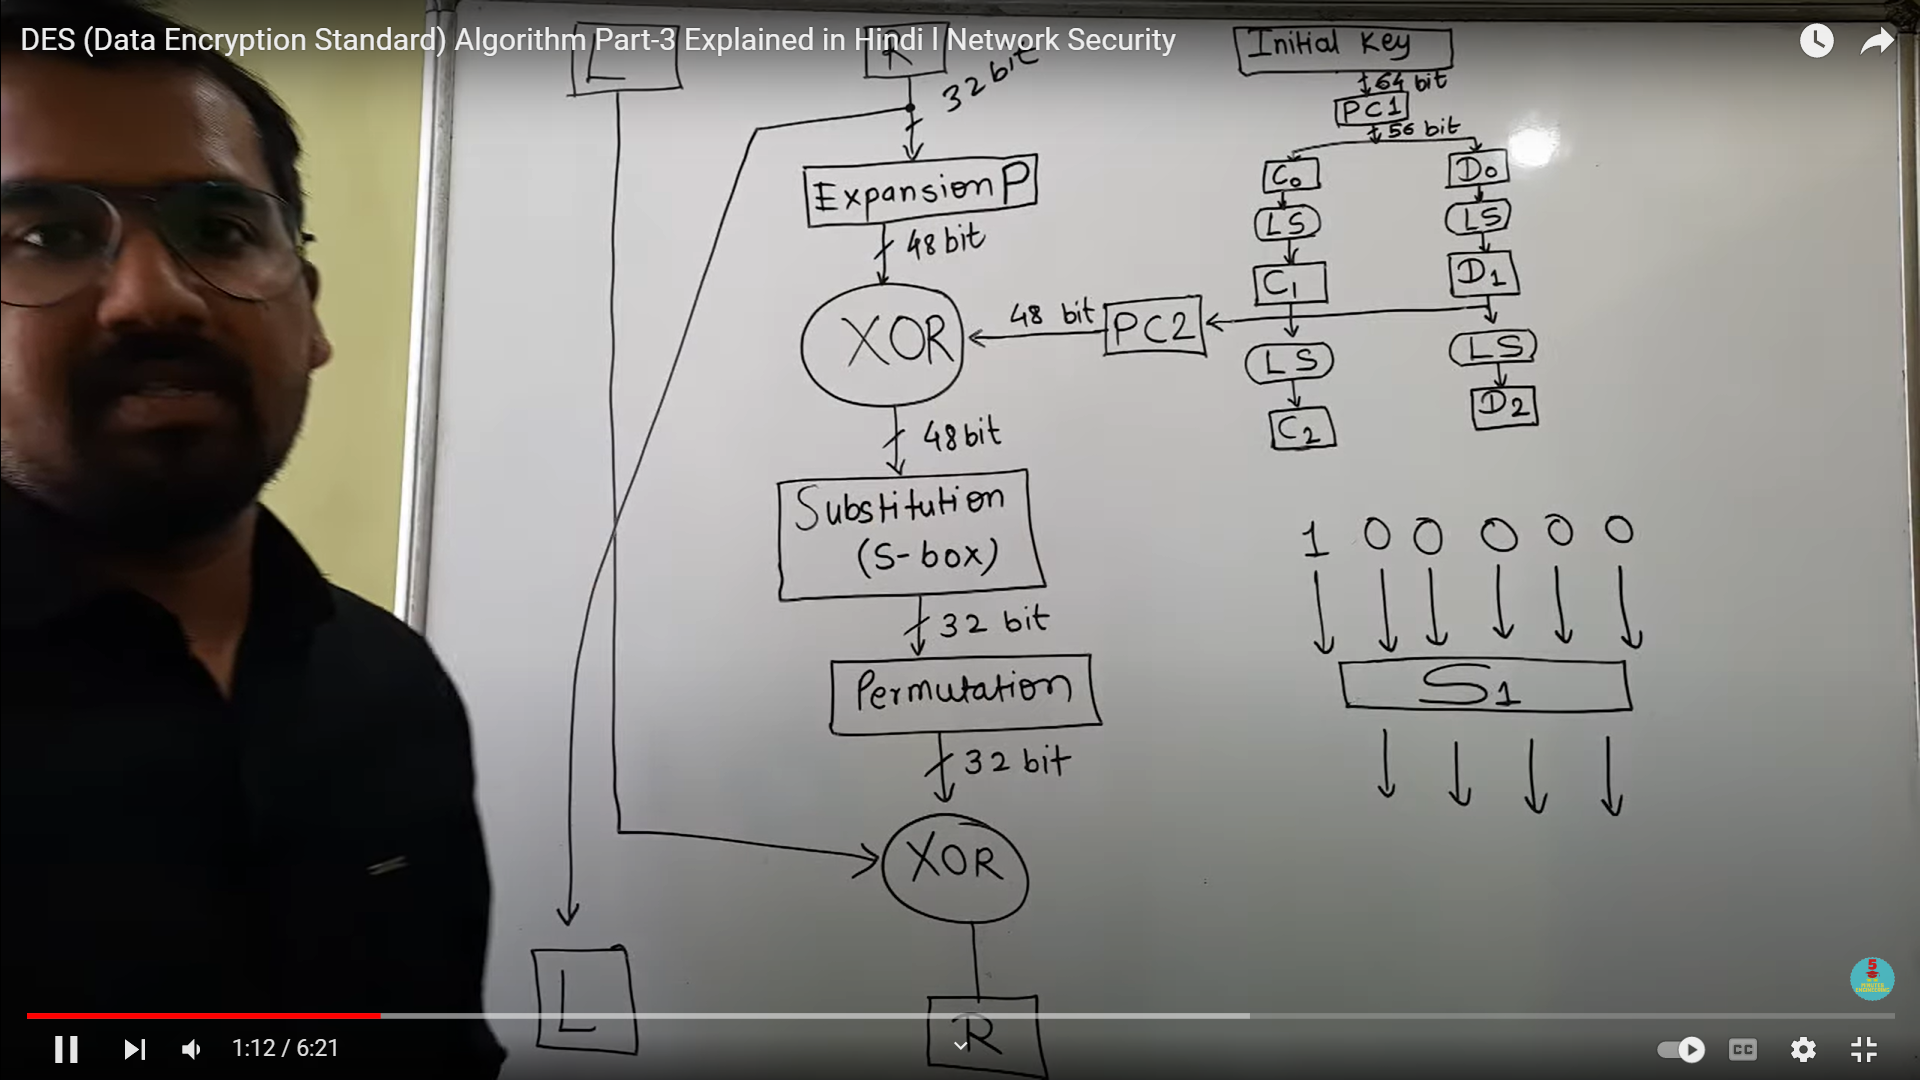 DES (Data Encryption Standard) Algorithm Part-3 Explained in Hindi l Network Security
L
R
32 bit
Expansion P
48 bit
XOR
48 bit
Substitution
(S-box)
32 bit
Permutation
32 bit
XOR
L
R
Initial Key
64 bit
PC1
56 bit
C0 D0
LS LS
C1 D1
48 bit PC2
LS LS
C2 D2
1 0 0 0 0 0
S1
5
1:12 / 6:21
CC